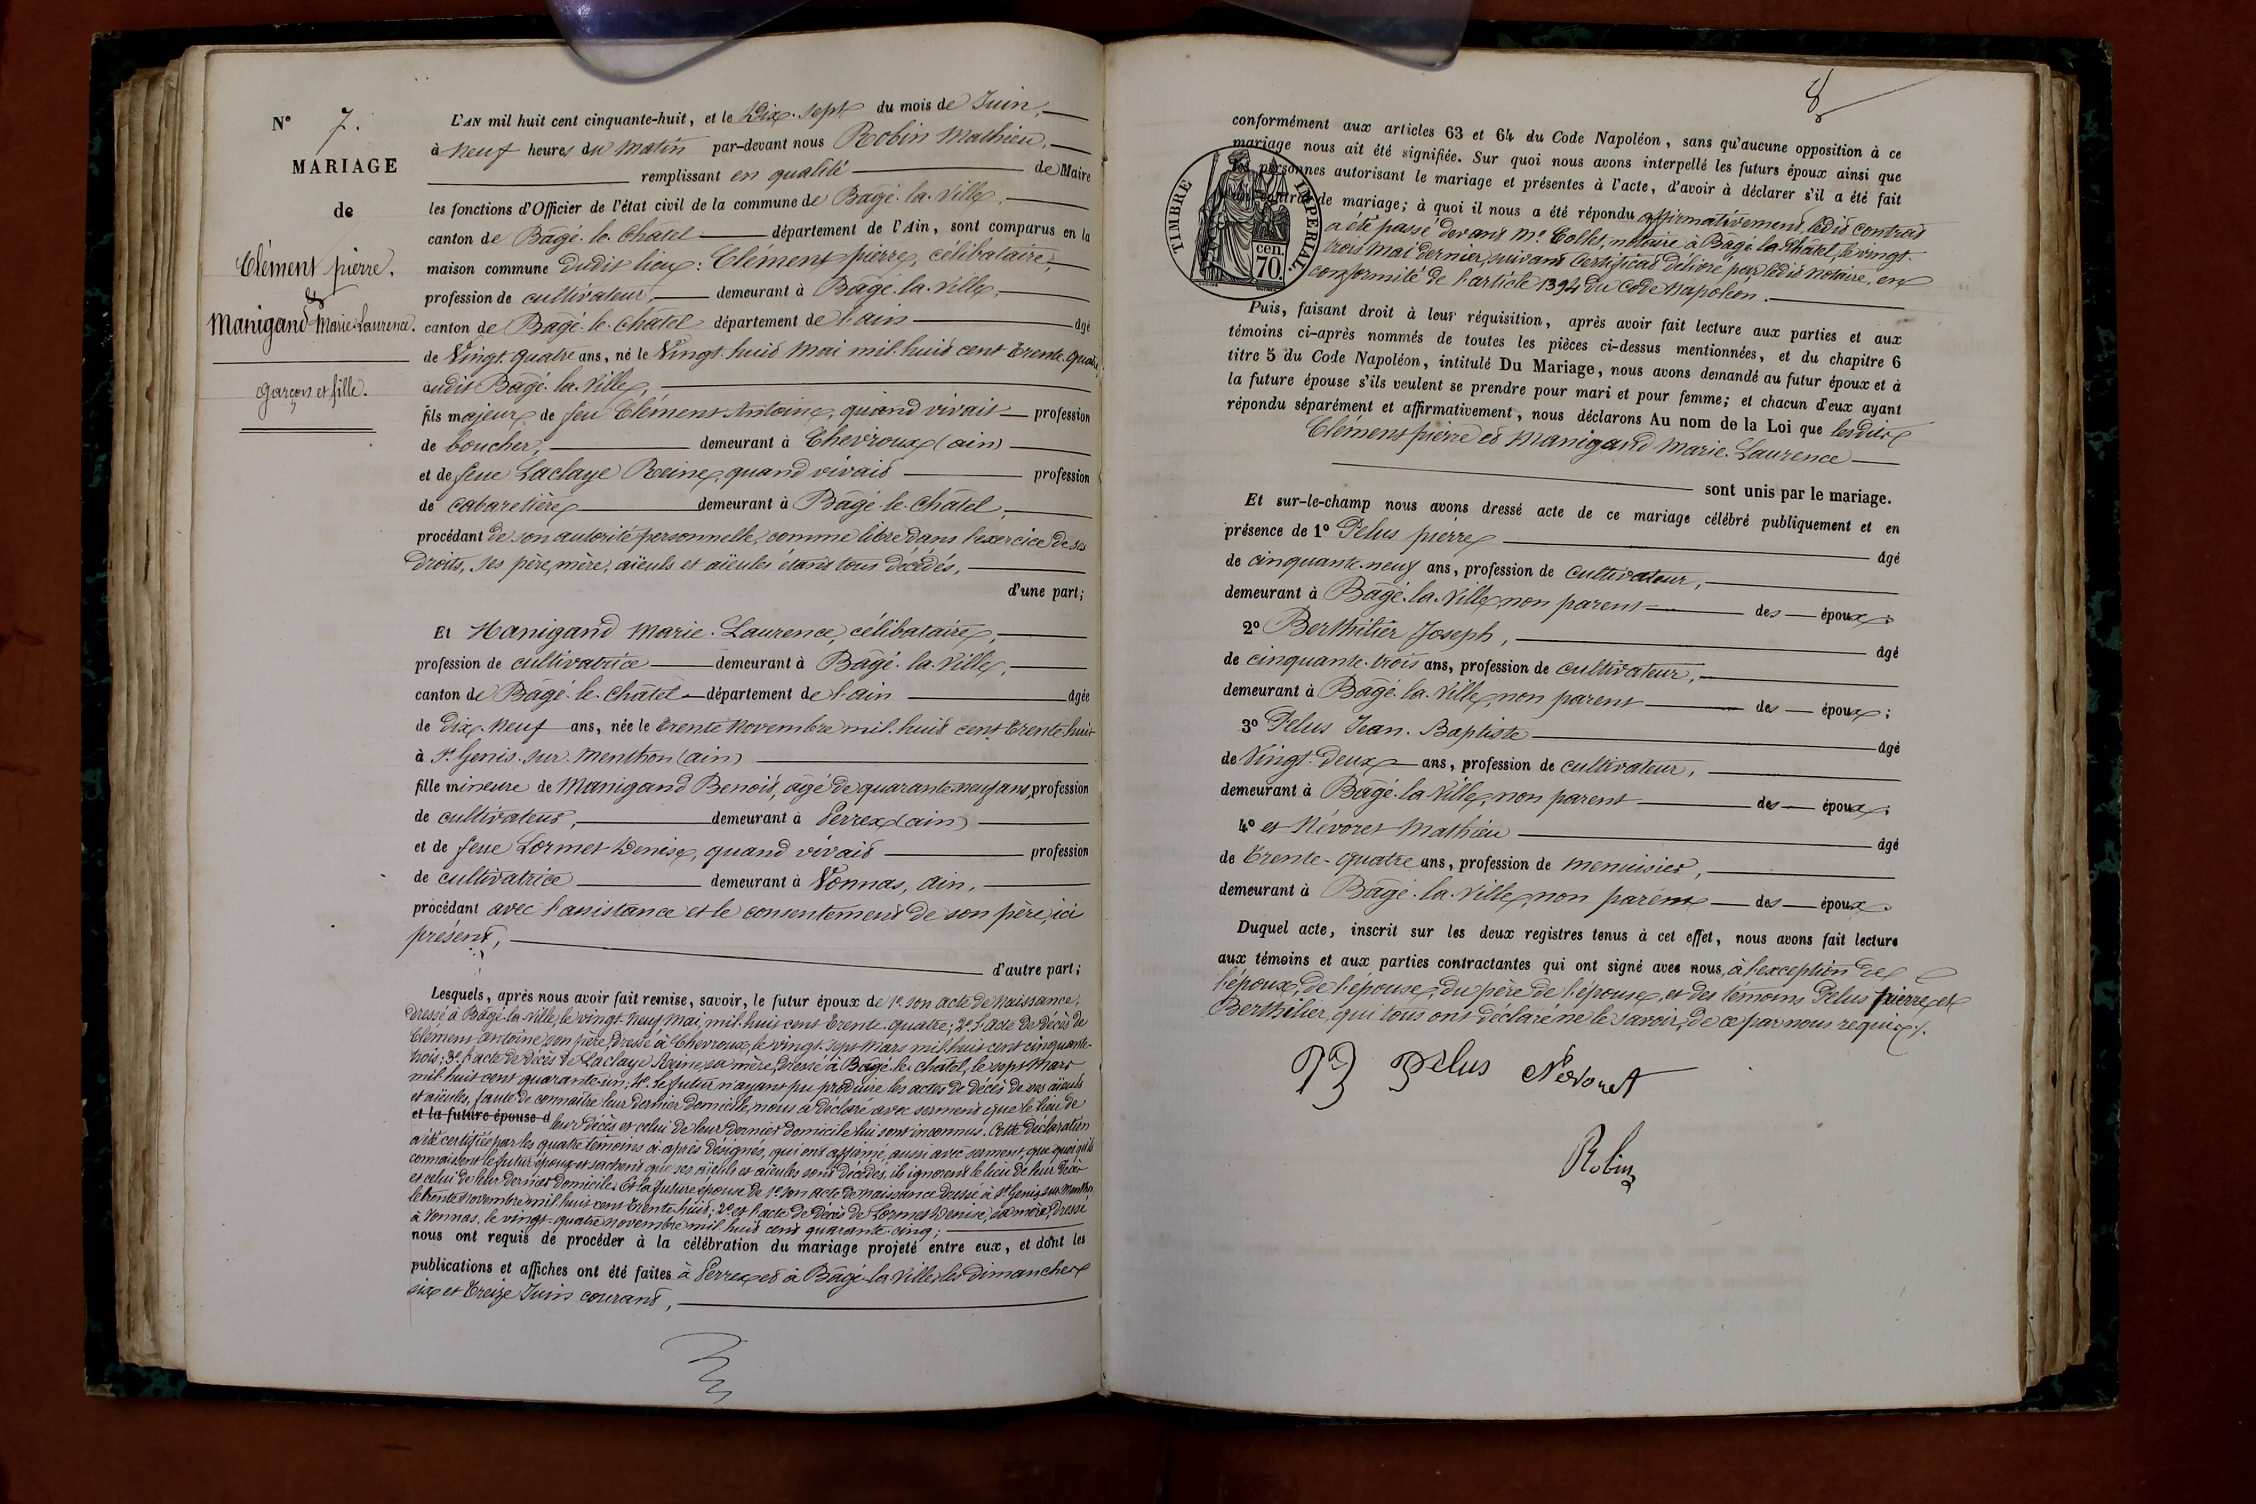 N° 7.
MARIAGE
de
Clément pierre.
&
Manigand Marie Laurence.
garçon et fille.
L'AN mil huit cent cinquante-huit, et le Dix-sept du mois de Juin,
à neuf heures du matin par-devant nous Robin Mathieu,
remplissant en qualité de Maire
les fonctions d'Officier de l'état civil de la commune de Bâgé-la-Ville,
canton de Bâgé-le-Châtel département de l'Ain, sont comparus en la
maison commune dudit lieu : Clément pierre, célibataire,
profession de cultivateur, demeurant à Bâgé-la-Ville,
canton de Bâgé-le-Châtel département de l'ain âgé
de Vingt-quatre ans, né le Vingt-huit Mai mil-huit cent trente-quatre
audit Bâgé-la-Ville,
fils majeur de feu Clément Antoine, quand vivait profession
de boucher, demeurant à Chevroux (ain)
et de feue Laclaye Reine, quand vivait profession
de cabaretière demeurant à Bâgé-le-Châtel,
procédant de son autorité personnelle, comme libre dans l'exercice de ses
droits, ses père, mère, aïeuls et aïeules étant tous décédés,
d'une part;
Et Manigand Marie-Laurence, célibataire,
profession de cultivatrice demeurant à Bâgé-la-Ville,
canton de Bâgé-le-Châtel département de l'ain âgée
de dix-neuf ans, née le trente Novembre mil-huit cent trente-huit
à St Genis-sur-Menthon (ain)
fille mineure de Manigand Benoit, âgé de quarante-neuf ans, profession
de cultivateur, demeurant à Perrex (ain)
et de feue Lormet Denise, quand vivait profession
de cultivatrice demeurant à Vonnas, ain,
procédant avec l'assistance et le consentement de son père, ici
présent,
d'autre part;
Lesquels, après nous avoir fait remise, savoir, le futur époux de 1° son acte de naissance,
dressé à Bâgé-la-Ville, le vingt-neuf mai, mil-huit cent trente-quatre; 2° l'acte de décès de
Clément Antoine son père, dressé à Chevroux, le vingt-sept Mars mil huit cent cinquante-
trois; 3° l'acte de décès de Laclaye Reine, sa mère, dressé à Bâgé-le-Châtel, le sept Mars
mil huit cent quarante-un; 4° le futur n'ayant pu produire les actes de décès de ses aïeuls
et aïeules, faute de connaître leur dernier domicile, nous a déclaré avec serment que le lieu de
et la future épouse d leur décès et celui de leur dernier domicile lui sont inconnus. Cette déclaration
a été certifiée par les quatre témoins ci-après désignés, qui ont affirmé, aussi avec serment, que quoiqu'ils
connaissent le futur époux et sachent que ses aïeuls et aïeules sont décédés, ils ignorent le lieu de leur décès
et celui de leur dernier domicile. Et la future épouse de 1° son acte de naissance dressé à St Genis sur Menthon,
le trente Novembre mil huit cent trente huit; 2° et l'acte de décès de Lormet Denise, sa mère, dressé
à Vonnas, le vingt-quatre novembre mil huit cent quarante-cinq;
nous ont requis de procéder à la célébration du mariage projeté entre eux, et dont les
publications et affiches ont été faites à Perrex et à Bâgé-la-Ville, les dimanches
six et treize Juin courant,
8
conformément aux articles 63 et 64 du Code Napoléon, sans qu'aucune opposition à ce
mariage nous ait été signifiée. Sur quoi nous avons interpellé les futurs époux ainsi que
les personnes autorisant le mariage et présentes à l'acte, d'avoir à déclarer s'il a été fait
un contrat de mariage; à quoi il nous a été répondu affirmativement, ledit contrat
a été passé devant Me Collet, notaire à Bâgé-le-Châtel, le vingt-
trois Mai dernier, suivant certificat délivré par ledit notaire, en
conformité de l'article 1394 du Code Napoléon.
TIMBRE IMPERIAL.
cen.
70
Puis, faisant droit à leur réquisition, après avoir fait lecture aux parties et aux
témoins ci-après nommés de toutes les pièces ci-dessus mentionnées, et du chapitre 6
titre 5 du Code Napoléon, intitulé Du Mariage, nous avons demandé au futur époux et à
la future épouse s'ils veulent se prendre pour mari et pour femme; et chacun d'eux ayant
répondu séparément et affirmativement, nous déclarons Au nom de la Loi que lesdits
Clément pierre et Manigand Marie-Laurence
sont unis par le mariage.
Et sur-le-champ nous avons dressé acte de ce mariage célébré publiquement et en
présence de 1° Pelus pierre âgé
de cinquante-neuf ans, profession de cultivateur,
demeurant à Bâgé-la-Ville, non parent des époux;
2° Berthilier Joseph, âgé
de cinquante-trois ans, profession de cultivateur,
demeurant à Bâgé-la-Ville, non parent des époux;
3° Pelus Jean-Baptiste âgé
de Vingt-deux ans, profession de cultivateur,
demeurant à Bâgé-la-Ville, non parent des époux;
4° et Névoret Mathieu âgé
de trente-quatre ans, profession de menuisier,
demeurant à Bâgé-la-Ville, non parent des époux.
Duquel acte, inscrit sur les deux registres tenus à cet effet, nous avons fait lecture
aux témoins et aux parties contractantes qui ont signé avec nous, à l'exception de
l'époux, de l'épouse, du père de l'épouse, et des témoins Pelus pierre et
Berthilier, qui tous ont déclaré ne le savoir, de ce par nous requis.
Pelus Nevoret
Robin